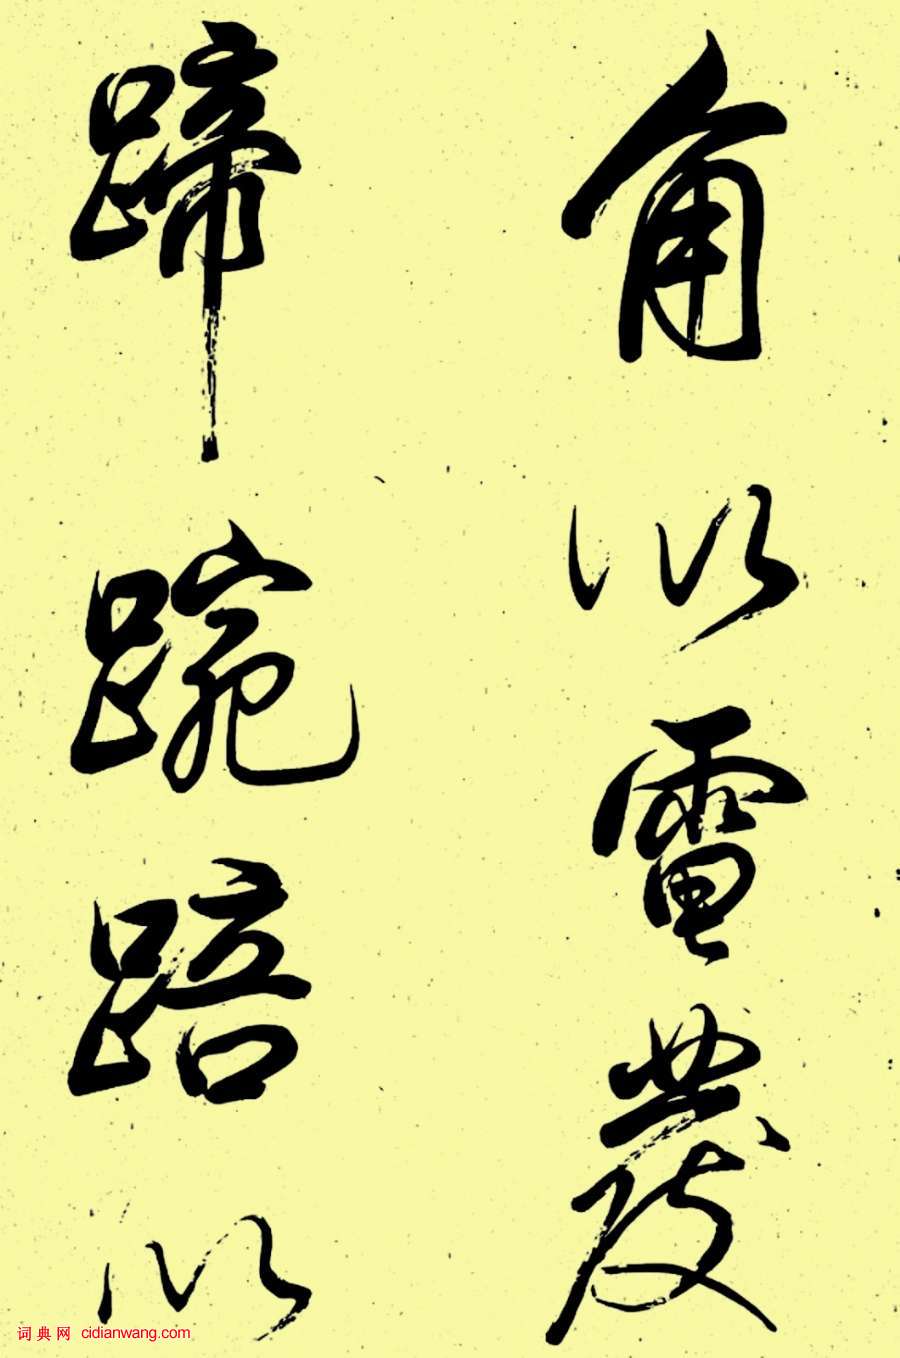 角以電發
蹄踠踣以
词典网 cidianwang.com